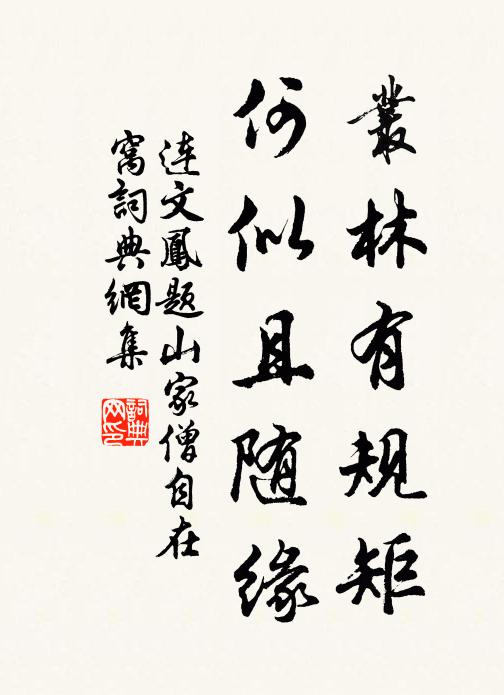 叢林有規矩
何似且随緣
連文鳳題山家僧自在
窩詞典網集
詞典
网印